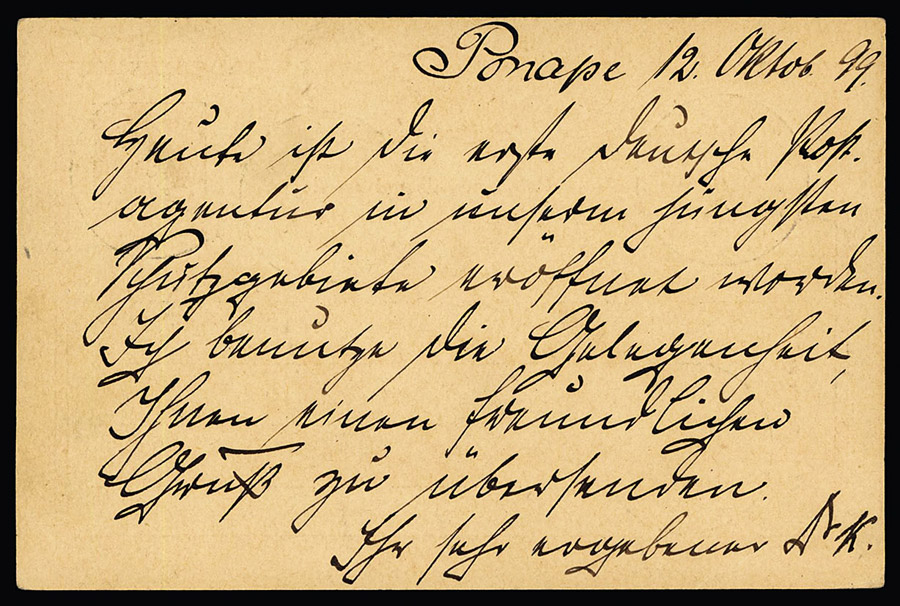 Ponape 12. Oktob. 99.
Heute ist die erste deutsche Post-
agentur in unserm jüngsten
Schutzgebiete eröffnet worden.
Ich benutze die Gelegenheit,
Ihnen einen freundlichen
Gruß zu übersenden.
Ihr sehr ergebener Dr K.